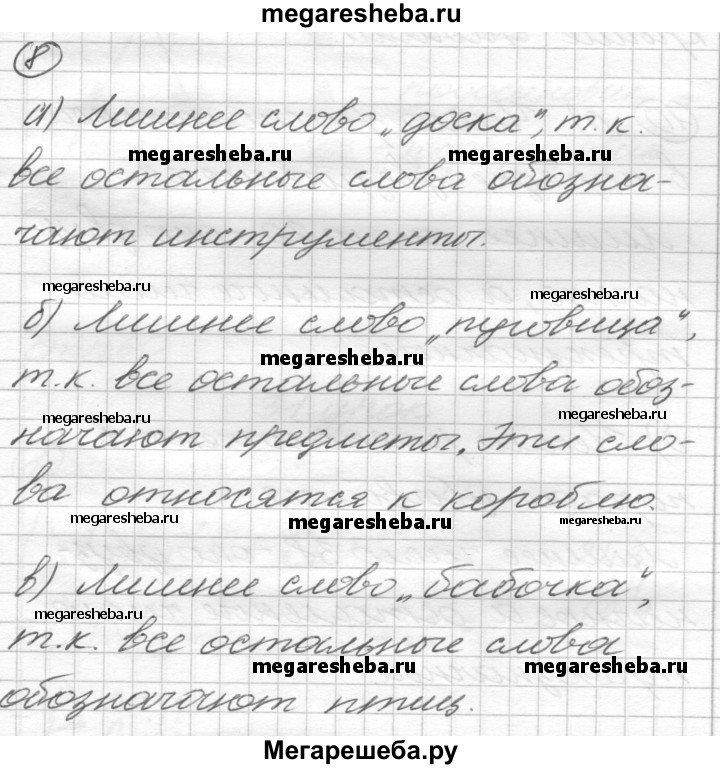 megaresheba.ru
8
а) Лишнее слово „доска“, т.к.
megaresheba.ru megaresheba.ru
все остальные слова обозна-
чают инструменты.
megaresheba.ru megaresheba.ru
б) Лишнее слово „пуговица“,
megaresheba.ru
т.к. все остальные слова обоз-
megaresheba.ru megaresheba.ru
начают предметы. Эти сло-
ва относятся к кораблю.
megaresheba.ru megaresheba.ru megaresheba.ru
в) Лишнее слово „бабочка“,
megaresheba.ru
т.к. все остальные слова
megaresheba.ru megaresheba.ru
обозначают птиц.
Мегарешеба.ру